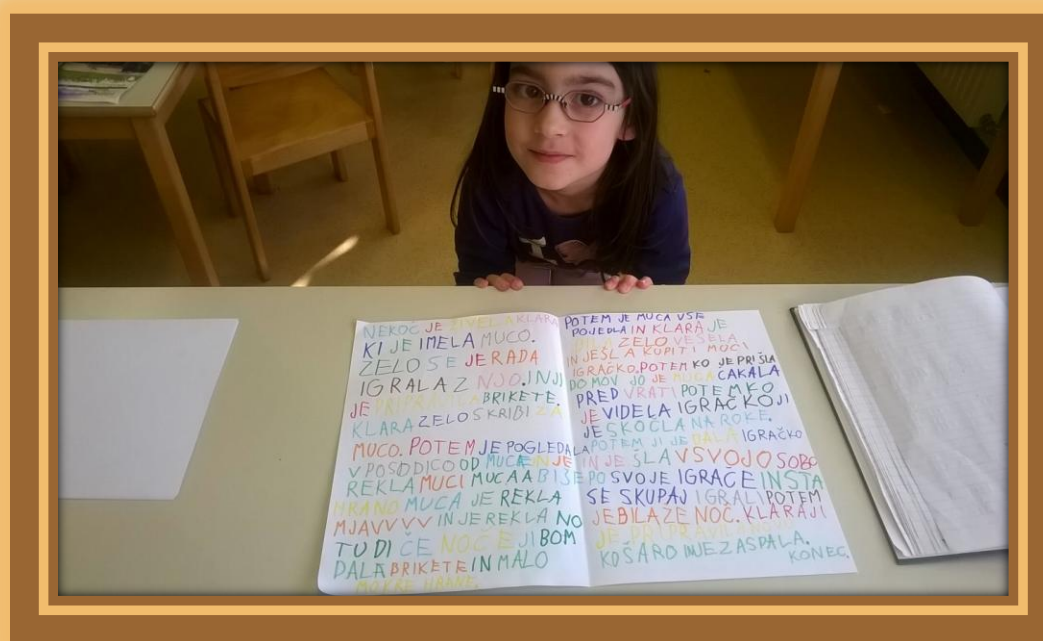 NEKOČ JE ŽIVELA KLARA
KI JE IMELA MUCO.
ZELO SE JE RADA
IGRALA Z NJO. IN JI
JE PRIPRAVILA BRIKETE.
KLARA ZELO SKRIBI ZA
MUCO. POTEM JE POGLEDALA
V POSODICO OD MUCE IN JE
REKLA MUCI MUCA A BI ŠE
HRANO MUCA JE REKLA
MJAVVVV IN JE REKLA NO
TUDI ČE NOČE JI BOM
DALA BRIKETE IN MALO
MOKRE HRANE.
POTEM JE MUCA VSE
POJEDLA IN KLARA JE
BILA ZELO VESELA
IN JE ŠLA KUPITI MUCI
IGRAČKO. POTEM KO JE PRIŠLA
DOMOV JO JE MUCA ČAKALA
PRED VRATI POTEM KO
JE VIDELA IGRAČKO JI
JE SKOČLA NA ROKE.
POTEM JI JE DALA IGRAČKO
IN JE ŠLA V SVOJO SOBO
PO SVOJE IGRAČE IN STA
SE SKUPAJ IGRALI POTEM
JE BILA ZE NOČ. KLARA JI
JE PRIPRAVILA NOVO
KOŠARO IN JE ZASPALA.
KONEC.